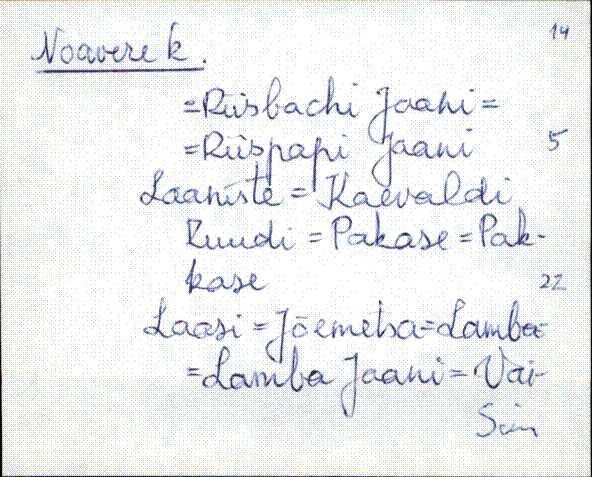 14
Noavere k.
=Riisbachi Jaani=
=Riispapi Jaani 5
Laaniste = Kaevaldi
Ruudi = Pakase = Pak-
kase 22
Laasi = Jõemetsa=Lamba=
=Lamba Jaani = Väi-